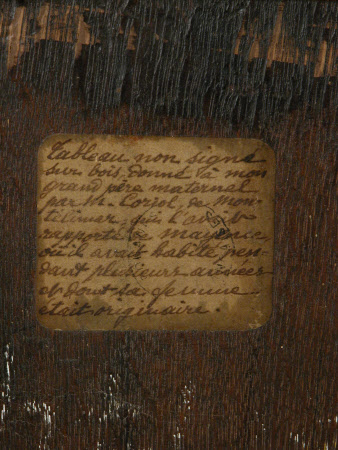 Tableau non signé
sur bois donné à mon
grand père maternel
par M. Corsol, de Mon-
télimar, qui l'avait
rapporté de Mayence,
où il avait habité pen-
dant plusieurs années
et dont sa femme
était originaire.